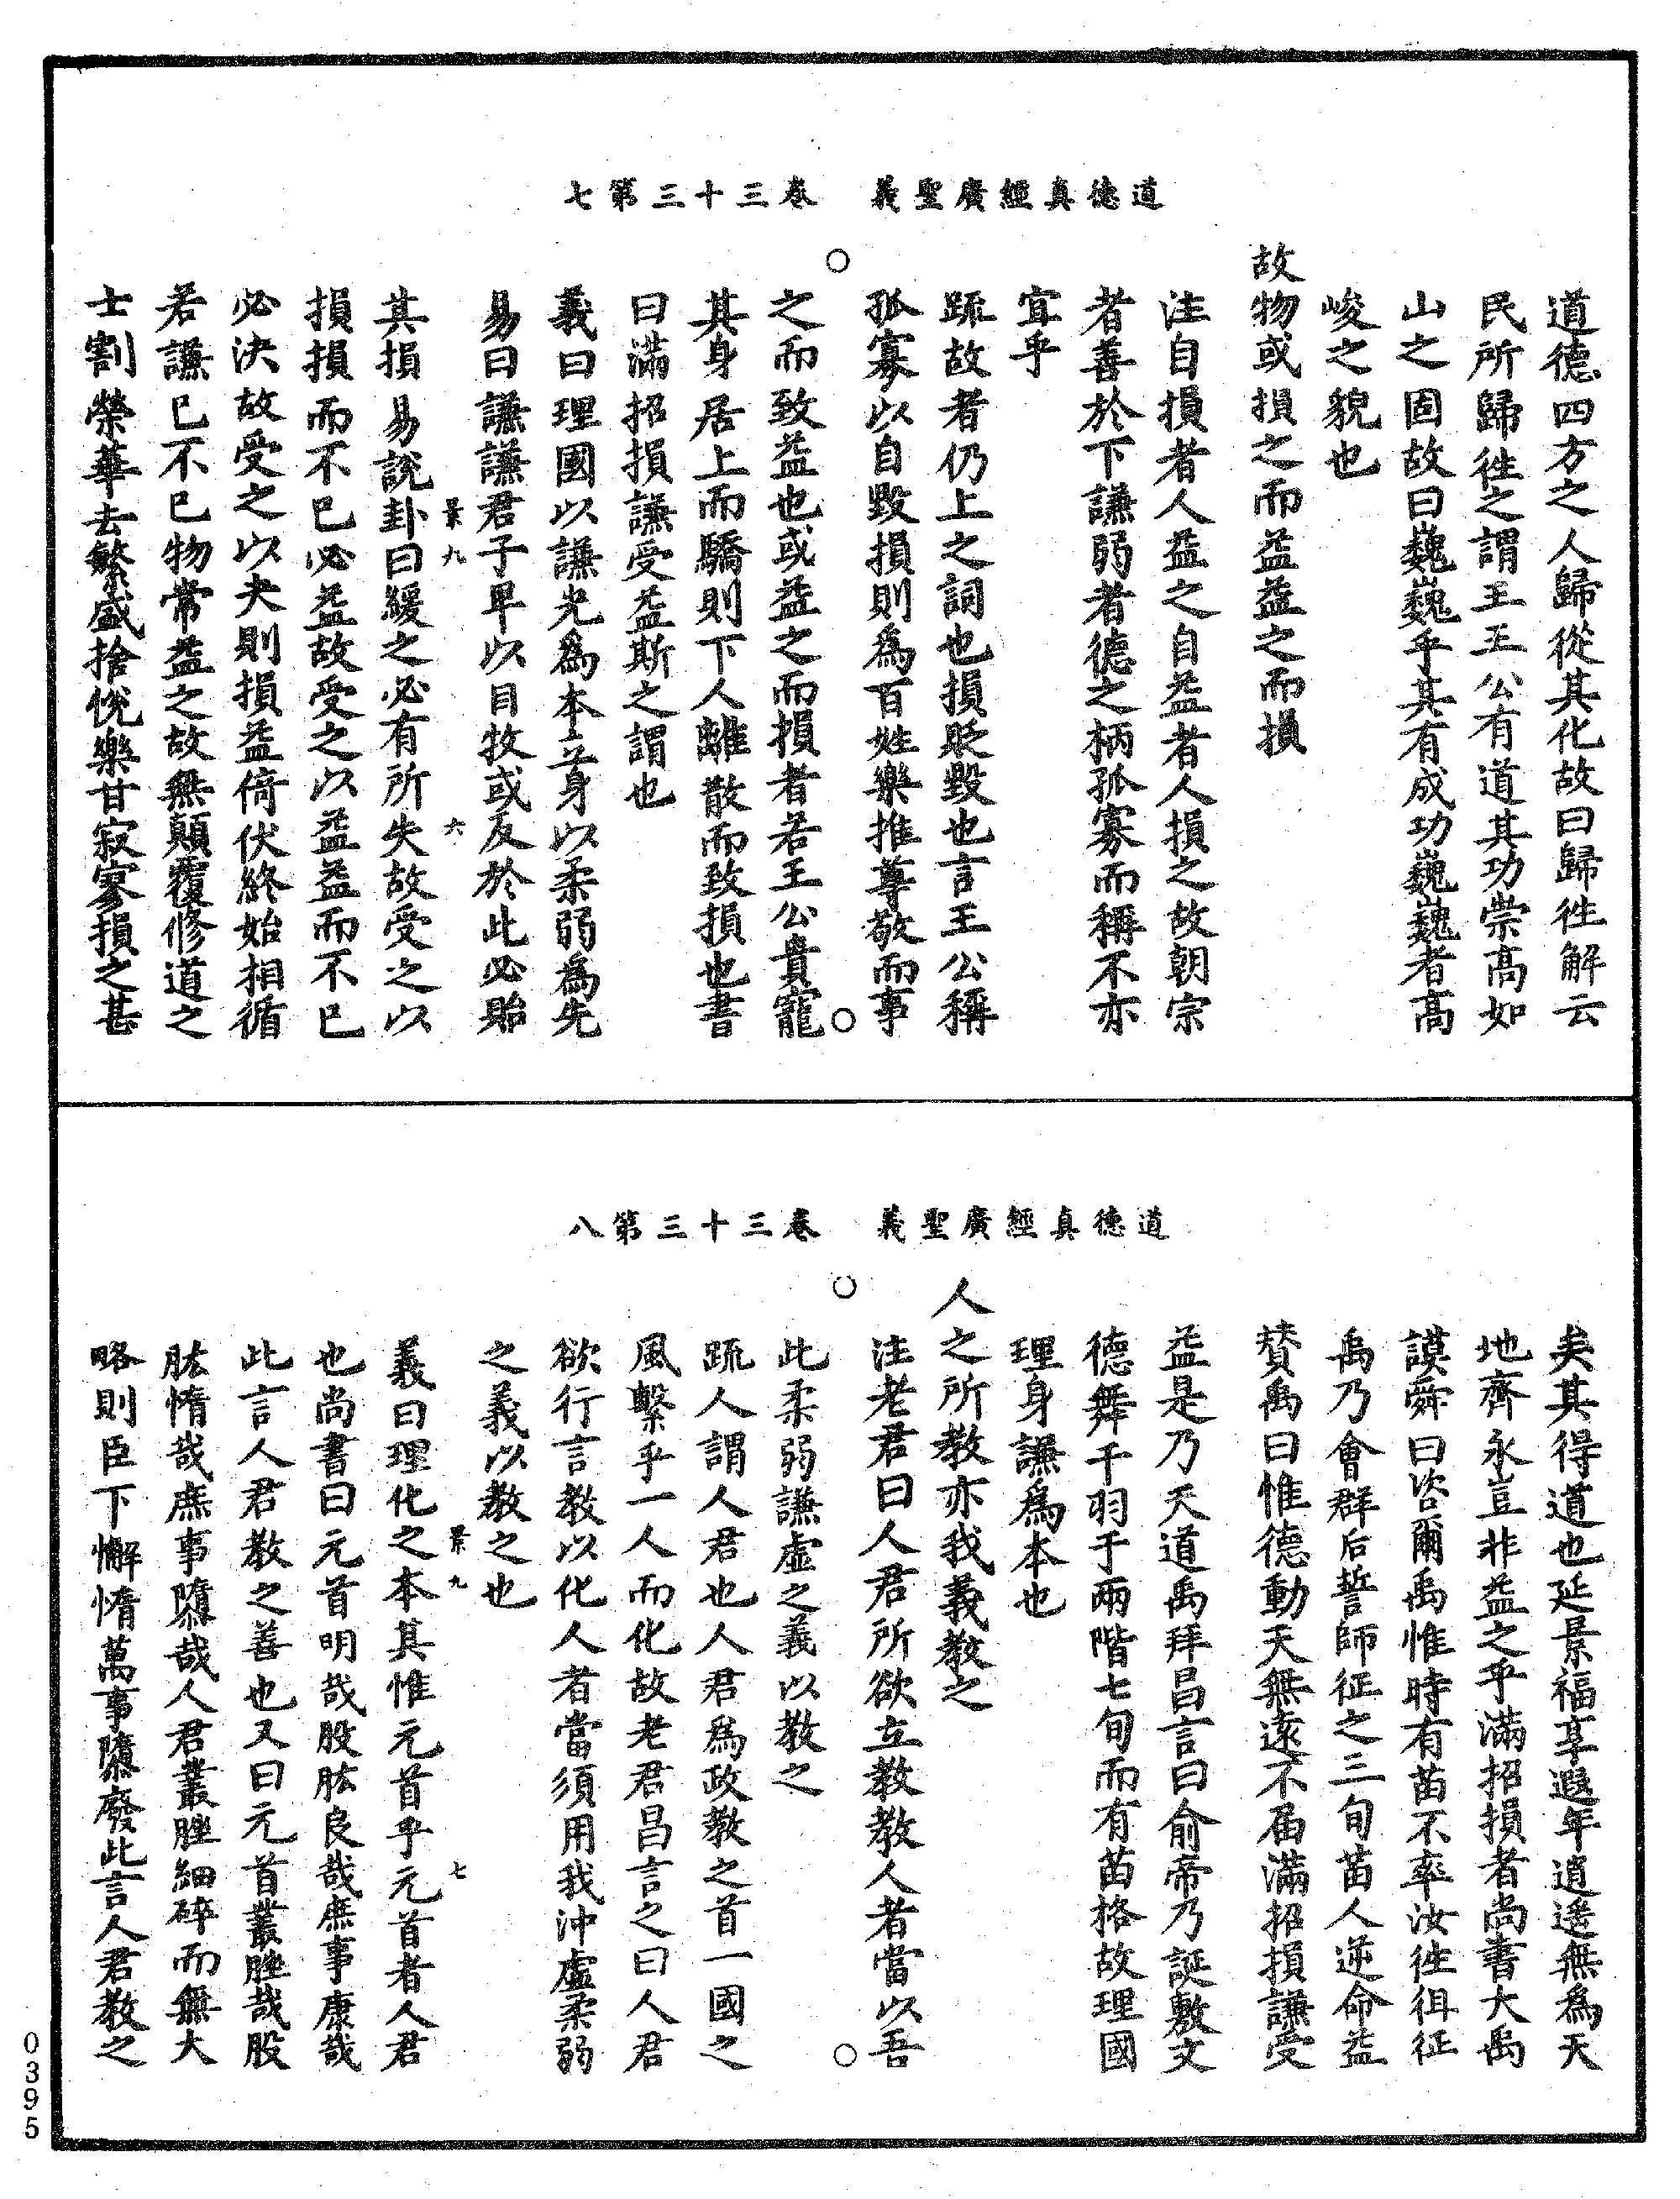 道德真經廣聖義　卷三十三第七
道德四方之人歸從其化故曰歸徃解云
民所歸徃之謂王王公有道其功崇高如
山之固故曰巍巍乎其有成功巍巍者高
峻之貌也
故物或損之而益益之而損
注自損者人益之自益者人損之故朝宗
者善於下謙弱者德之柄孤寡而稱不亦
宜乎
疏故者仍上之詞也損貶毀也言王公稱
孤寡以自毀損則為百姓樂推尊敬而事
之而致益也或益之而損者若王公貴寵
其身居上而驕則下人離散而致損也書
曰滿招損謙受益斯之謂也
義曰理國以謙光為本立身以柔弱為先
易曰謙謙君子卑以自牧或反於此必貽
景九　六
其損易說卦曰緩之必有所失故受之以
損損而不已必益故受之以益益而不已
必決故受之以夬則損益倚伏終始相循
若謙已不已物常益之故無顛覆修道之
士割榮華去繁盛捨悅樂甘寂寥損之甚
道德真經廣聖義　卷三十三第八
矣其得道也延景福享遐年逍遙無為天
地齊永豈非益之乎滿招損者尚書大禹
謨舜曰咨爾禹惟時有苗不率汝徃徂征
禹乃會群后誓師征之三旬苗人逆命益
賛禹曰惟德動天無遠不届滿招損謙受
益是乃天道禹拜昌言曰俞帝乃誕敷文
德舞干羽于兩階七旬而有苗格故理國
理身謙為本也
人之所教亦我義教之
注老君曰人君所欲立教教人者當以吾
此柔弱謙虛之義以教之
疏人謂人君也人君為政教之首一國之
風繫乎一人而化故老君昌言之曰人君
欲行言教以化人者當須用我沖虛柔弱
之義以教之也
景九　七
義曰理化之本其惟元首乎元首者人君
也尚書曰元首明哉股肱良哉庶事康哉
此言人君教之善也又曰元首叢脞哉股
肱惰哉庶事隳哉人君叢脞細碎而無大
略則臣下懈惰萬事隳廢此言人君教之
0395